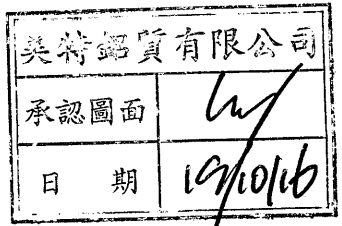 美特鋁質有限公司
承認圖面
日 期 19/10/16